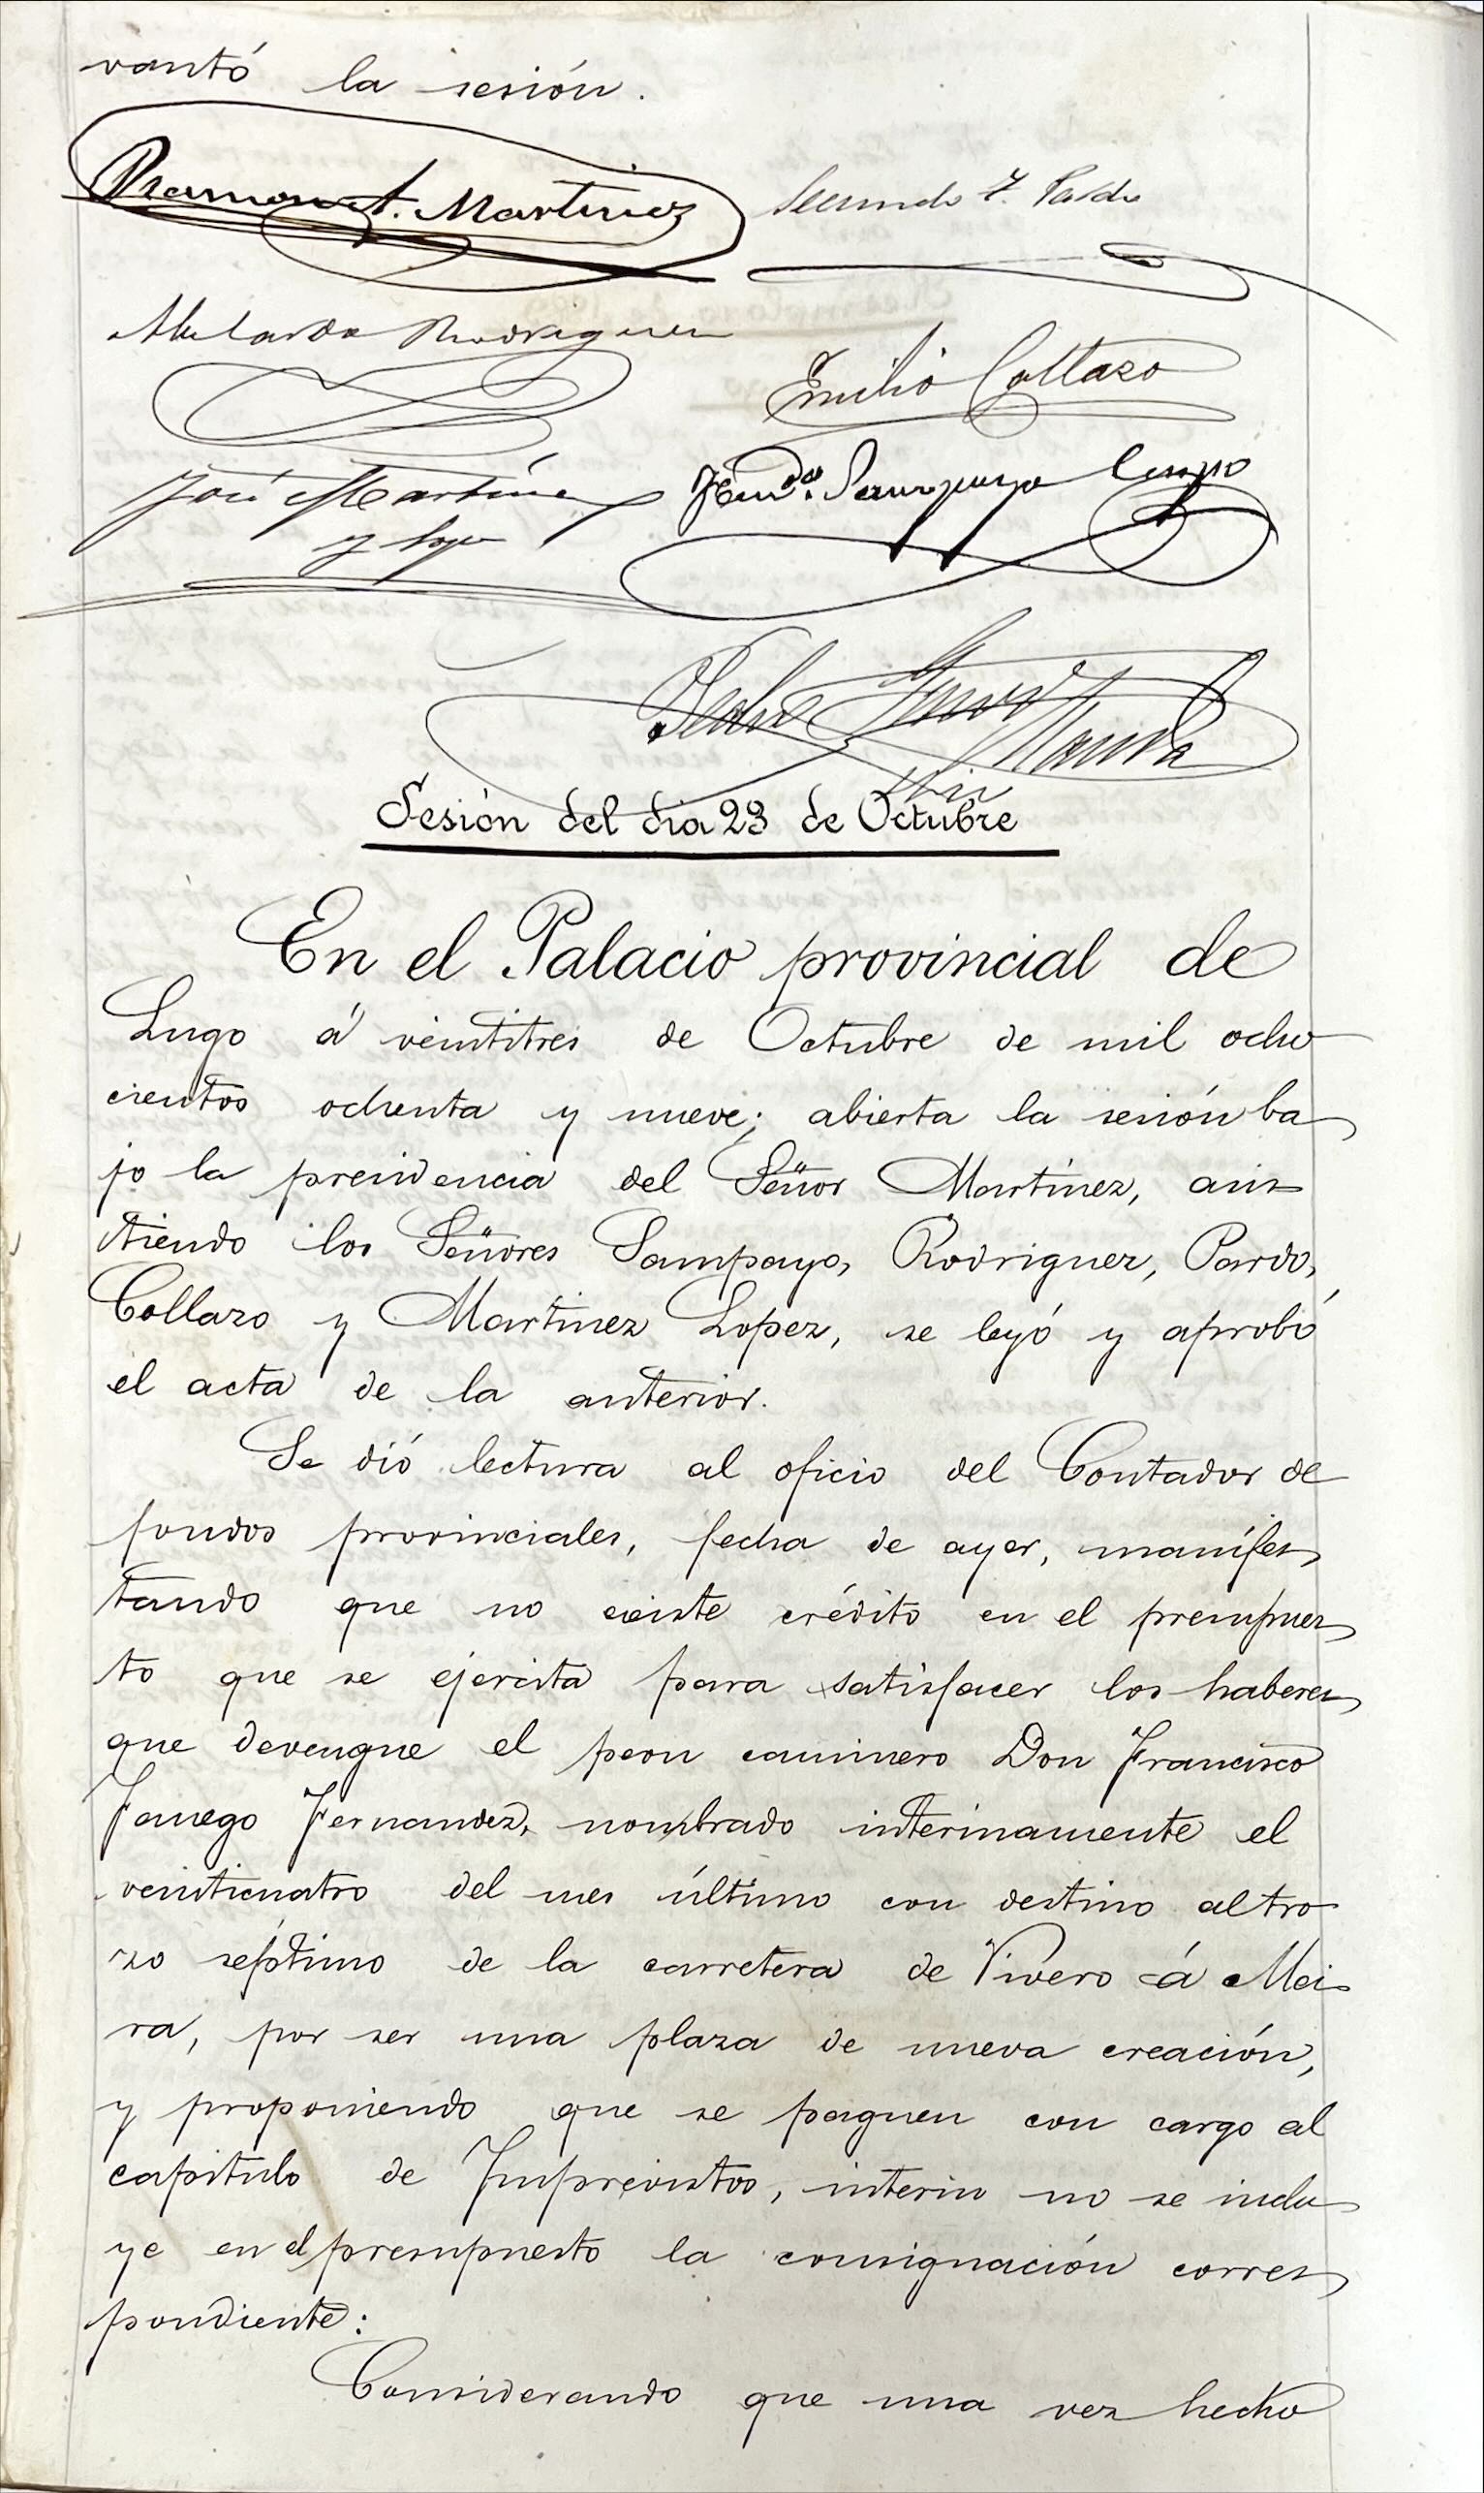 vantó la sesión.
Ramon A. Martinez
Segundo F. Pardo
Abelardo Rodriguez
Emilio Collazo
José Martinez
y Lopez
Sampayo
Pedro
Sesión del dia 23 de Octubre
En el Palacio provincial de
Lugo á veintitres de Octubre de mil ocho
cientos ochenta y nueve; abierta la sesión ba
jo la presidencia del Señor Martínez, asis
tiendo los Señores Sampayo, Rodriguez, Pardo,
Collazo y Martinez Lopez, se leyó y aprobó
el acta de la anterior.
Se dió lectura al oficio del Contador de
fondos provinciales, fecha de ayer, manifes
tando que no existe crédito en el presupues
to que se ejercita para satisfacer los haberes
que devengue el peon caminero Don Francisco
Fanego Fernandez, nombrado interinamente el
veinticuatro del mes último con destino al tro
zo séptimo de la carretera de Vivero á Mei
ra, por ser una plaza de nueva creación,
y proponiendo que se paguen con cargo al
capitulo de Imprevistos, interin no se inclu
ye en el presupuesto la consignación corres
pondiente:
Considerando que una vez hecho